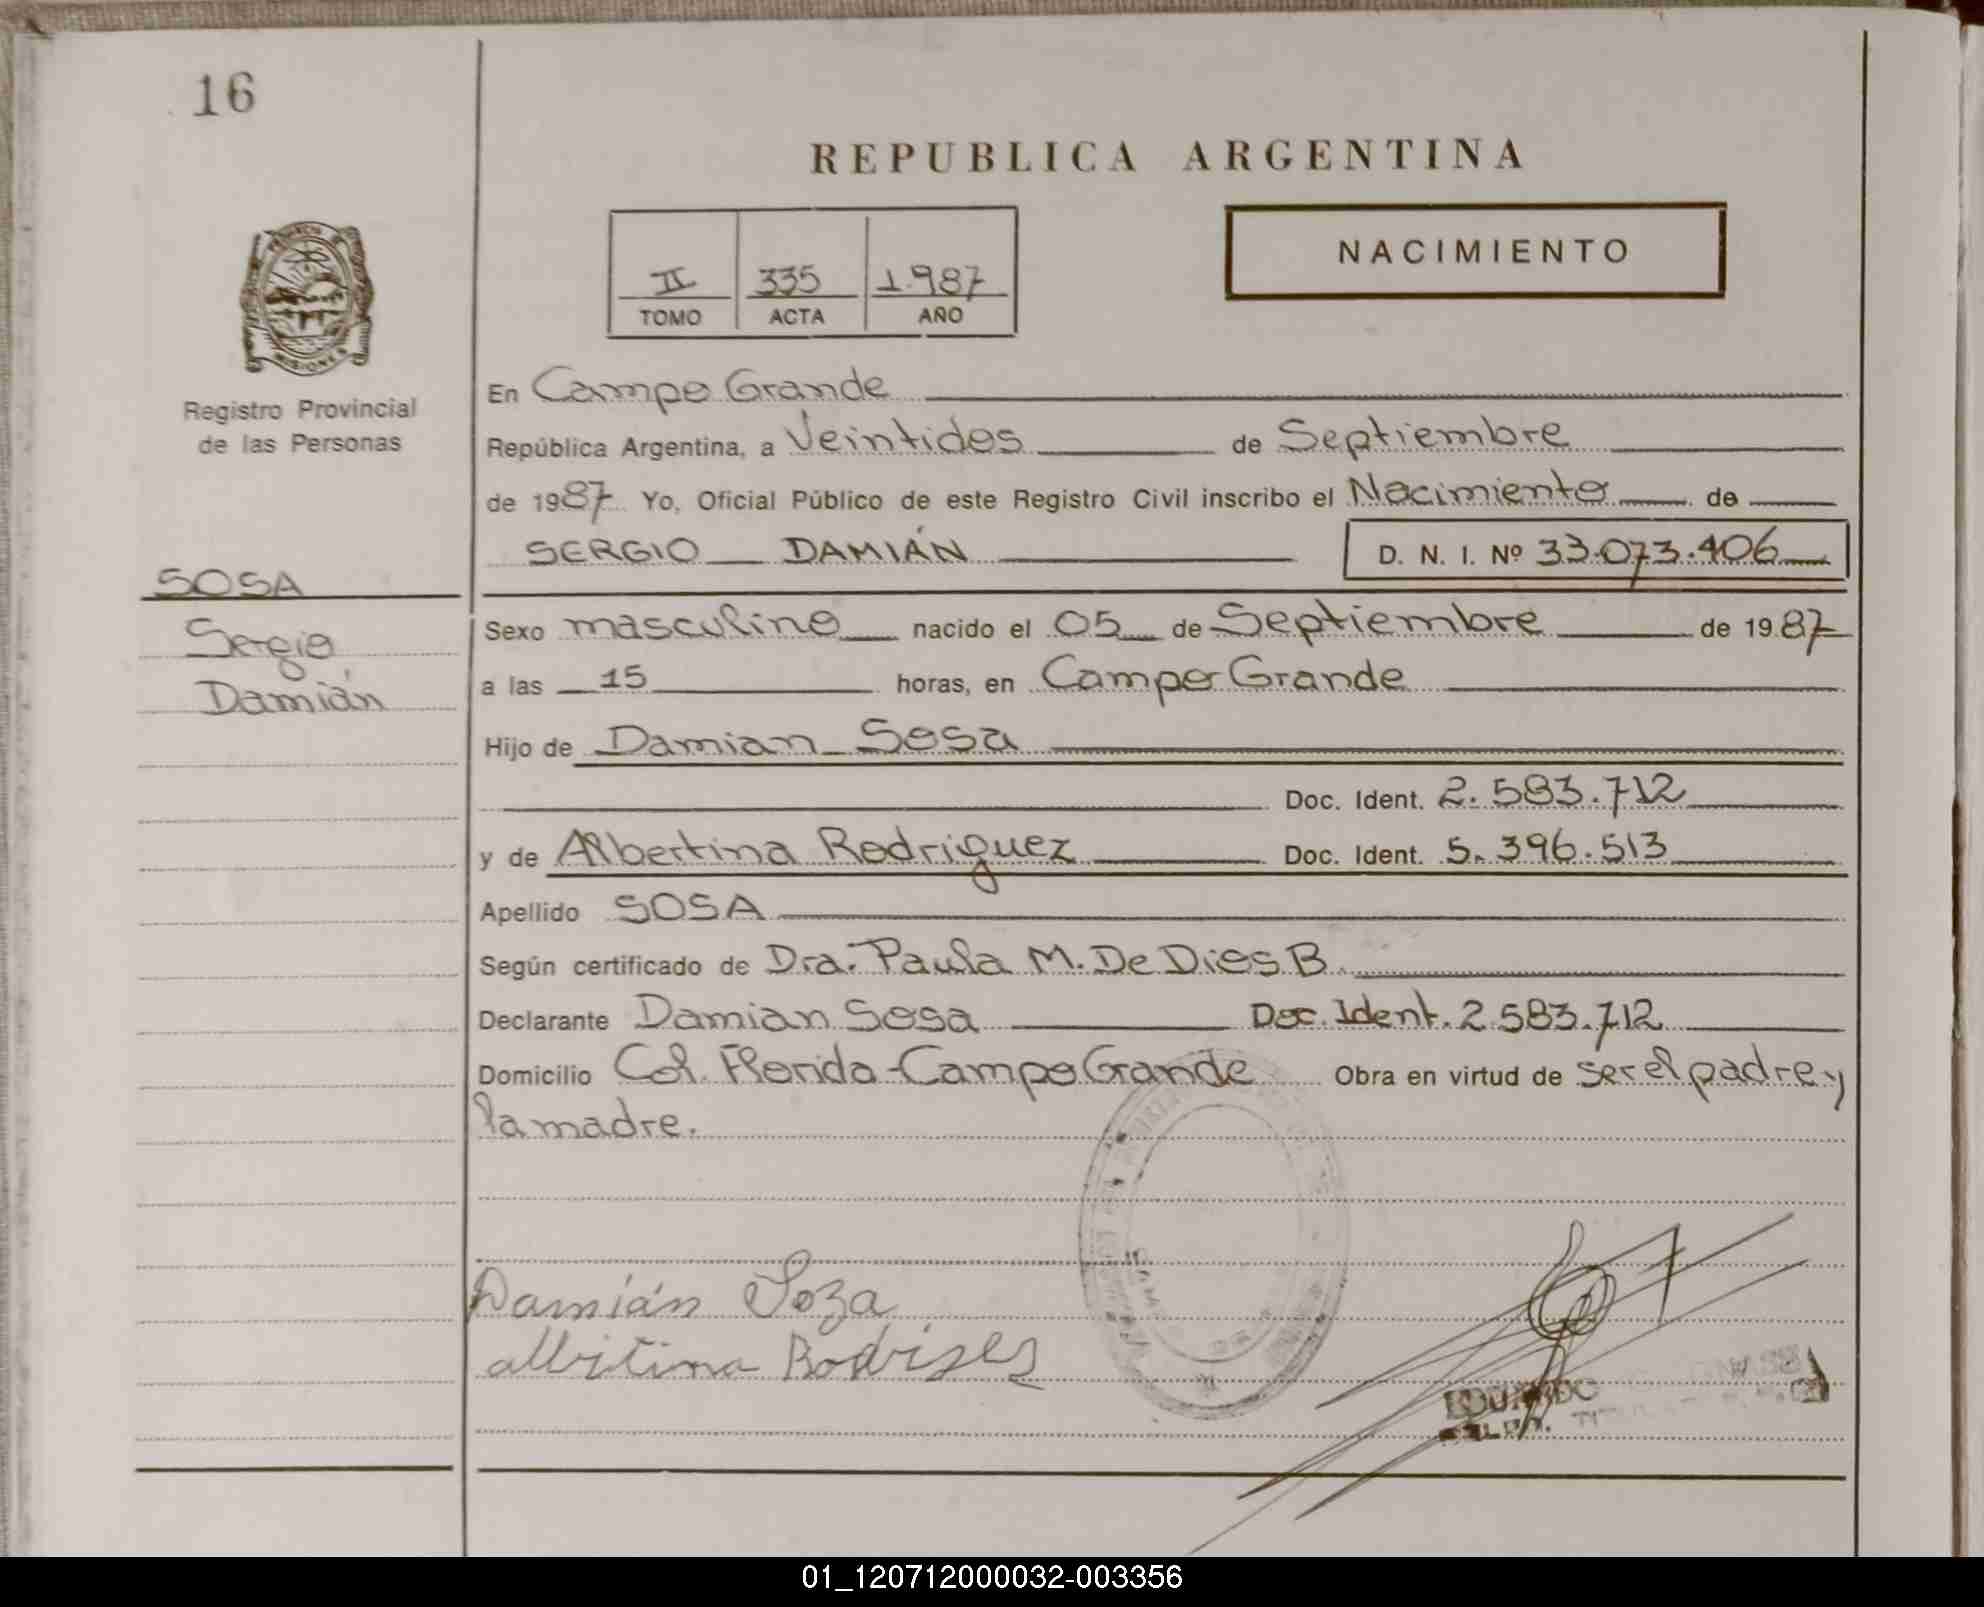 16
REPUBLICA ARGENTINA
NACIMIENTO
II 335 1.987
TOMO ACTA AÑO
MISIONES
Registro Provincial
de las Personas
En Campo Grande
República Argentina, a Veintidos de Septiembre
de 1987 Yo, Oficial Público de este Registro Civil inscribo el Nacimiento de
SERGIO DAMIÁN D. N. I. Nº 33.073.406
SOSA
Sergio
Damián
Sexo masculino nacido el 05 de Septiembre de 1987
a las 15 horas, en Campo Grande
Hijo de Damian Sosa
Doc. Ident. 2.583.712
y de Albertina Rodriguez Doc. Ident. 5.396.513
Apellido SOSA
Según certificado de Dra. Paula M. De Dios B.
Declarante Damian Sosa Doc. Ident. 2.583.712
Domicilio Col. Florida-Campo Grande Obra en virtud de ser el padre y
la madre.
Damián Soza
albitina Rodrisez
EDUARDO
01_120712000032-003356